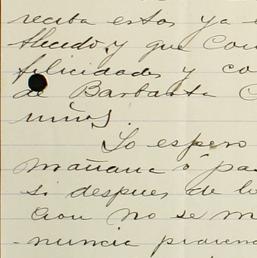 reciba estos ya
tlecedo, y que Con
felicidades y co
de Barbarita C
niños.
Lo espero
mañana ó pa
si despues de lo
cion no se m
nuncia